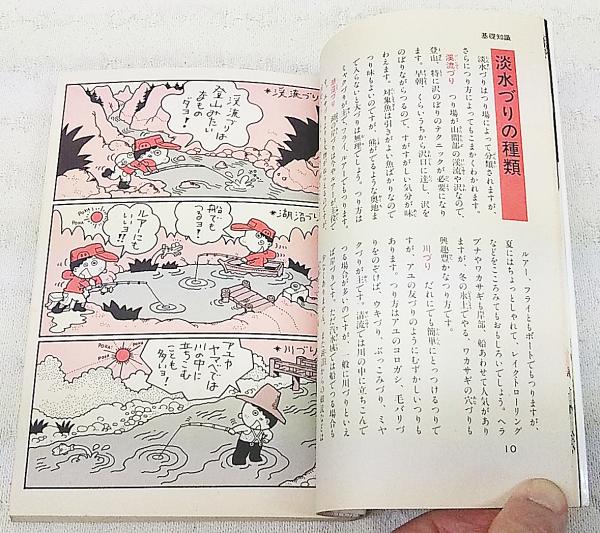 基礎知識
淡水づりの種類
淡水づりはつり場によって分類されますが、
さらにつり方によってもこまかくわかれます。
渓流づり つり場が山間部の渓流や沢なので、
登山、特に沢のぼりのテクニックが必要になり
ます。早朝、くらいうちから沢口に達し、沢を
のぼりながらつるので、すがすがしい気分が味
わえます。対象魚は引きがよい魚ばかりなので
つり味もよいのですが、熊がでるような奥地ま
で入らないと大づりは無理でしょう。つり方は
ミャクづりが主で、フライ、ルアーでもつります。
ルアー、フライともボートでもつりますが、
夏にはちょっとしゃれて、レイクトローリング
などをこころみてもおもしろいでしょう。ヘラ
ブナやワカサギも岸部、船あわせて人気があり
ますが、冬の氷上でやる、ワカサギの穴づりも
興趣豊かなつり方です。
川づり だれにでも簡単にとっつけるつりで
すが、アユの友づりのようにむずかしいつりも
あります。つり方はアユのコロガシ、毛バリづ
りをのぞけば、ウキづり、ぶっこみづり、ミャ
クづりが主です。清流では川の中に立ちこんで
つる場合が多いのですが、一般に川づりといえ
10
★渓流づり
渓流づりは
登山みたい
なもの
ダヨ!
★湖沼づり
船でも
つるヨ!
ルアーに
もいいヨ!!
★川づり
アユカ
ヤマベでは
川の中に
立ちこむ
ことも
多いヨ!
POKA
POKA
POKA!
POKA!